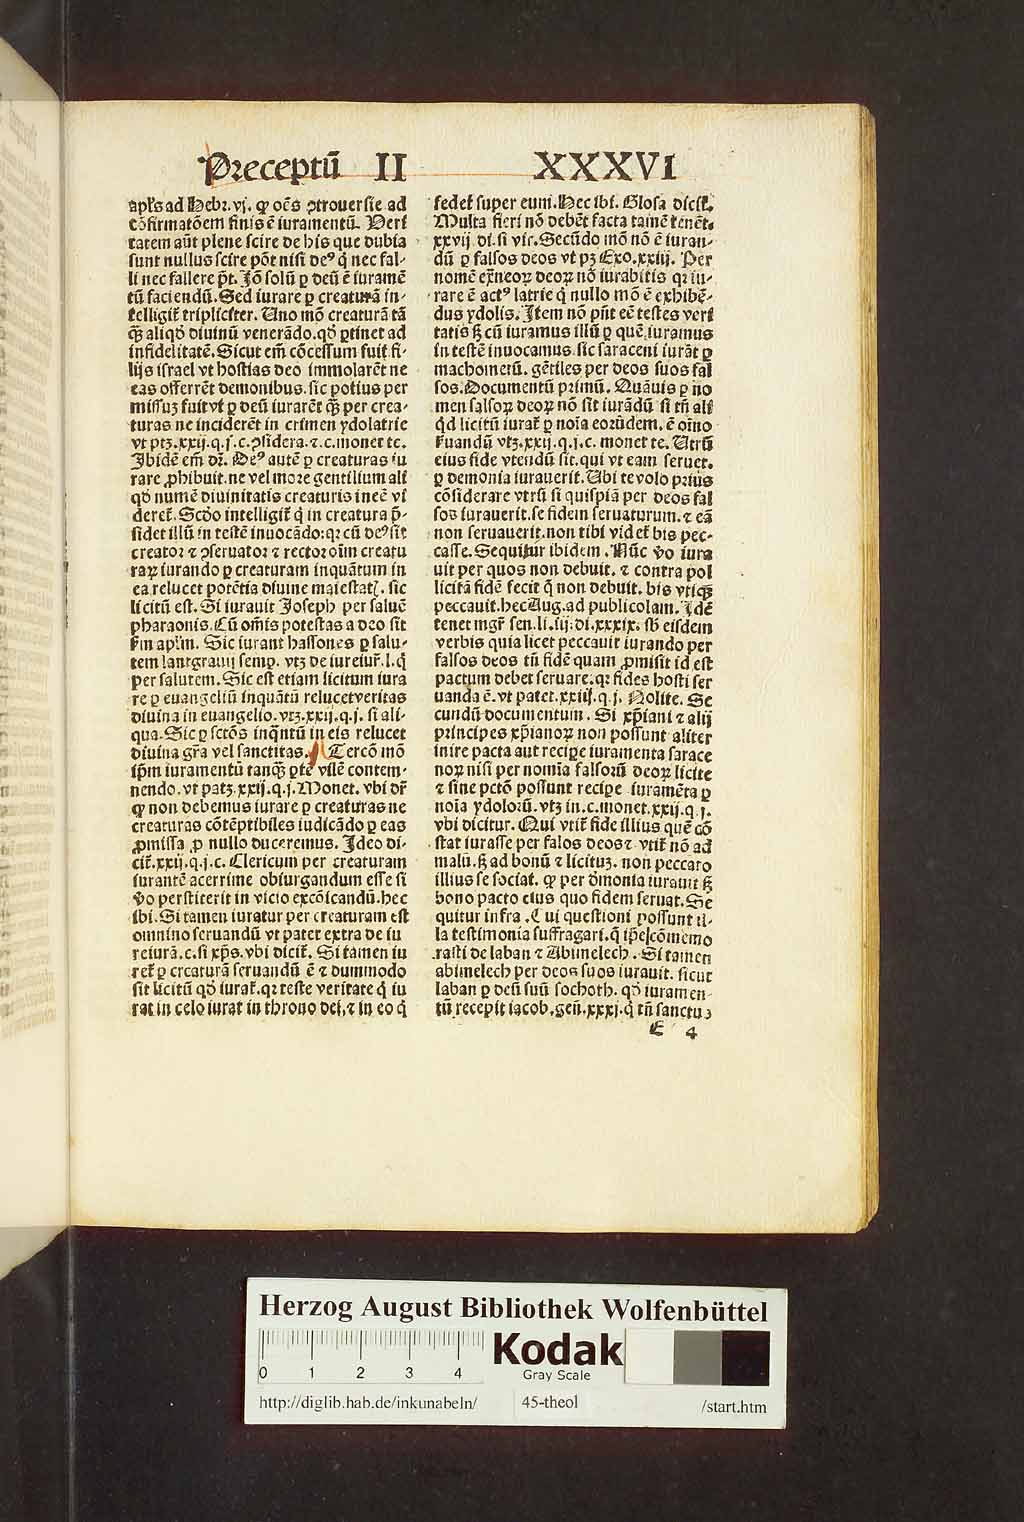 Preceptū II XXXVI
apl's ad Hebr. vj. ꝙ oēs ꝯtrouersie ad
cōfirmatōem finis ē iuramentū. Veri
tatem aūt plene scire de his que dubia
sunt nullus scire pōt nisi deꝰ q̄ nec fal-
li nec fallere p̄t. Jō solū ꝑ deū ē iuramē
tū faciendū. Sed iurare ꝑ creaturā in-
telligit̄ tripliciter. Uno mō creaturā tā
ꝙ̄ aliqd̄ diuinū venerādo. qd̄ ꝑtinet ad
infidelitatē. Sicut em̄ cōcessum fuit fi-
lijs israel vt hostias deo immolarēt ne
eas offerrēt demonibus. sic potius per
missuꝫ fuit vt ꝑ deū iurarēt ꝙ̄ per crea-
turas ne inciderēt in crimen ydolatrie
vt ptꝫ. xxij. q. j. c. ꝯsidera. ⁊ c. monet te.
Ibidē em̄ dr̄. Deꝰ autē ꝑ creaturas iu
rare ꝓhibuit. ne vel more gentilium ali
qd̄ numē diuinitatis creaturis ineē vi
deret̄. Scd̄o intelligit̄ q̄ in creatura p̄-
sidet illū in testē inuocādo: qꝛ cū deꝰ sit
creator ⁊ ꝯseruator ⁊ rector oīm creatu
raꝝ iurando ꝑ creaturam inquātum in
ea relucet potētia diuine maiestatꝭ. sic
licitū est. Si iurauit Joseph per saluē
pharaonis. Cū om̄is potestas a deo sit
ẜm apl'm. Sic iurant hassones ꝑ salu-
tem lantgrauij semꝑ. vtꝫ de iureiur̄. l. q̄
per salutem. Sic est etiam licitum iura
re ꝑ euangeliū inquātū relucet veritas
diuina in euangelio. vtꝫ. xxij. q. j. si ali-
qua. Sic ꝑ sctōs inq̄ntū in eis relucet
diuina gr̄a vel sanctitas. Tercō mō
ip̄m iuramentū tanꝙ̄ ꝑte vilē contem-
nendo. vt patꝫ. xxij. q. j. Monet. vbi dr̄
ꝙ non debemus iurare ꝑ creaturas ne
creaturas cōtēptibiles iudicādo ꝑ eas
ꝓmissa ꝓ nullo duceremus. Ideo di-
cit̄. xxij. q. j. c. Clericum per creaturam
iurantē acerrime obiurgandum esse si
vo perstiterit in vicio excōicandū. hec
ibi. Si tamen iuratur per creaturam est
omnino seruandū vt patet extra de iu
reiurā. c. si xp̄s. vbi dicit̄. Si tamen iu
ret̄ ꝑ creaturā seruandū ē ⁊ dummodo
sit licitū qd̄ iurat̄. qꝛ teste veritate q̄ iu
rat in celo iurat in throno dei, ⁊ in eo q̄
sedet super eum. Hec ibi. Glosa dicit̄.
Multa fieri nō debēt facta tamē tenēt.
xxvij. di. si vir. Secūdo mō nō ē iuran-
dū ꝑ falsos deos vt pꝫ Exo. xxiij. Per
nomē ex̄neoꝝ deoꝝ nō iurabitis qꝛ iu-
rare ē actꝰ latrie q̄ nullo mō ē exhibē-
dus ydolis. Item nō pn̄t eē testes veri
tatis ꝫ cū iuramus illū ꝑ quē iuramus
in testē inuocamus. sic saraceni iurāt ꝑ
machometū. gētiles per deos suos fal
sos. Documentū primū. Quāuis ꝑ no
men falsoꝝ deoꝝ nō sit iurādū si tn̄ ali
q̄d licitū iurat̄ ꝑ noīa eorūdem. ē oīno
ẜuandū vtꝫ. xxij. q. j. c. monet te. Utrū
eius fide vtendū sit. qui vt eam seruet.
ꝑ demonia iurauerit. Ubi te volo prius
cōsiderare vtrū si quispiā per deos fal
sos iurauerit. se fidem seruaturum. ⁊ eā
non seruauerit. non tibi videt̄ bis pec-
casse. Sequitur ibidem. Nūc vo iura
uit per quos non debuit. ⁊ contra pol
licitā fidē fecit q̄ non debuit. bis vtiqꝫ
peccauit. hec Aug. ad publicolam. Idē
tenet mgr̄ sen. li. iij. di. xxxix. sb̄ eisdem
verbis quia licet peccauit iurando per
falsos deos tn̄ fidē quam ꝓmisit id est
pactum debet seruare. qꝛ fides hosti ser
uanda ē. vt patet. xxiij. q. j. Nolite. Se
cundū documentum. Si xp̄iani ⁊ alij
principes xp̄ianoꝝ non possunt aliter
inire pacta aut recipe iuramenta sarace
noꝝ nisi per nomīa falsorū deoꝝ licite
⁊ sine pctō possunt recipe iuramēta ꝑ
noīa ydolorū. vtꝫ in. c. monet. xxij. q. j.
vbi dicitur. Qui vtit̄ fide illius quē cō
stat iurasse per falos deos ⁊ vtit̄ nō ad
malū. ꝫ ad bonū ⁊ licituꝫ. non peccato
illius se sociat. ꝙ per dēmonia iurauit ꝫ
bono pacto eius quo fidem seruat. Se
quitur infra. Cui questioni possunt il-
la testimonia suffragari. q̄ ip̄e cōmemo
rasti de laban ⁊ Abimelech. Si tamen
abimelech per deos suos iurauit. sicut
laban ꝑ deū suū sochoth. qd̄ iuramen-
tū recepit iacob. gen̄. xxxj. q̄ tn̄ sanctuꝫ
E 4
Herzog August Bibliothek Wolfenbüttel
0 1 2 3 4
Kodak
Gray Scale
http://diglib.hab.de/inkunabeln/ 45-theol /start.htm